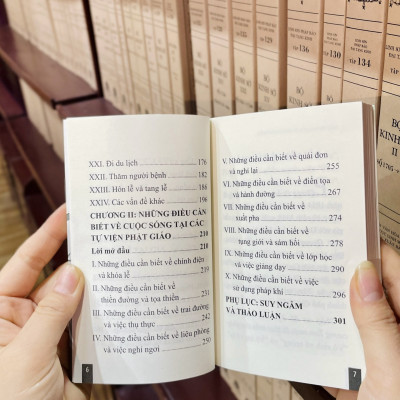 XXI. Đi du lịch 176
XXII. Thăm người bệnh 182
XXIII. Hôn lễ và tang lễ 186
XXIV. Các vấn đề khác 196
CHƯƠNG II: NHỮNG ĐIỀU CẦN
BIẾT VỀ CUỘC SỐNG TẠI CÁC
TỰ VIỆN PHẬT GIÁO 210
Lời mở đầu 210
I. Những điều cần biết về chính điện
và khóa lễ 219
II. Những điều cần biết về
thiền đường và tọa thiền 231
III. Những điều cần biết về trai đường
và việc thụ thực 242
IV. Những điều cần biết về liêu phòng
và việc nghỉ ngơi 250
6
V. Những điều cần biết về quải đơn
và nghi lại 255
VI. Những điều cần biết về điển tọa
và hành đường 267
VII. Những điều cần biết về
xuất pha 274
VIII. Những điều cần biết về
tụng giới và sám hối 284
IX. Những điều cần biết về lớp học
và việc giảng dạy 290
X. Những điều cần biết về việc
sử dụng pháp khí 296
PHỤ LỤC: SUY NGẪM
VÀ THẢO LUẬN 301
7
TẬP 136
TẬP 130
TẬP 134
BỘ
KINH SỚ